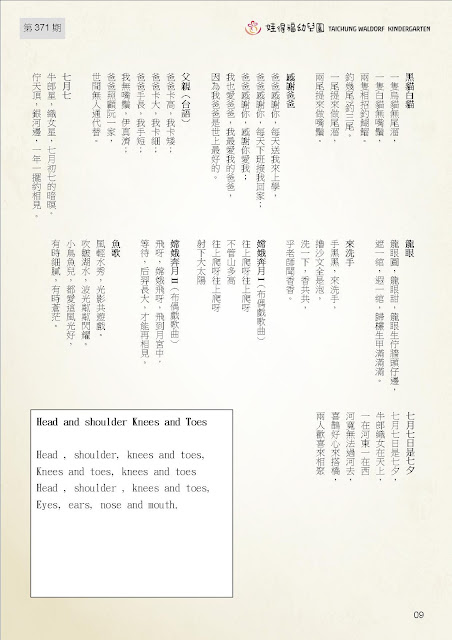 第 371 期
娃得福幼兒園 TAICHUNG WALDORF KINDERGARTEN
黑貓白貓
一隻烏貓無尾溜，
一隻白貓無嘴鬚，
兩隻相招釣鰗鰡。
釣幾尾釣三尾，
一尾提來做尾溜，
兩尾提來做嘴鬚。
感謝爸爸
爸爸感謝你，每天送我來上學，
爸爸感謝你，每天下班接我回家；
爸爸感謝你，感謝你愛我；
我也愛爸爸，我最愛我的爸爸，
因為我爸爸是世上最好的。
父親（台語）
爸爸卡高，我卡矮；
爸爸卡大，我卡細；
爸爸手長，我手短；
我無嘴鬚，伊真濟；
爸爸照顧阮一家，
世間無人通代替。
七月七
牛郎星，織女星，七月初七的暗暝，
佇天頂，銀河邊，一年一擺約相見。
龍眼
龍眼圓，龍眼甜，龍眼生佇牆頭仔邊，
遮一綰，遐一綰，歸欉生甲滿滿滿。
來洗手
手黑黑，來洗手，
沙文全是泡，
洗一下，香共共，
乎老師聞香香。
嫦娥奔月 I（布偶戲歌曲）
往上爬呀往上爬呀
不管山多高
往上爬呀往上爬呀
射下大太陽
嫦娥奔月 II（布偶戲歌曲）
飛呀，嫦娥飛呀，飛到月宮中，
等待，后羿長大，才能再相見。
魚歌
風輕水秀，光影共遊戲。
吹皺湖水，波光粼粼閃耀。
小鳥魚兒，都愛這風光好。
有時細膩，有時蒼茫。
七月七日是七夕
七月七日是七夕，
牛郎織女在天上，
一在河東一在西
河寬無法過河去，
喜鵲好心來搭橋，
兩人歡喜來相聚
Head and shoulder Knees and Toes
Head , shoulder, knees and toes,
Knees and toes, knees and toes
Head , shoulder , knees and toes,
Eyes, ears, nose and mouth.
09